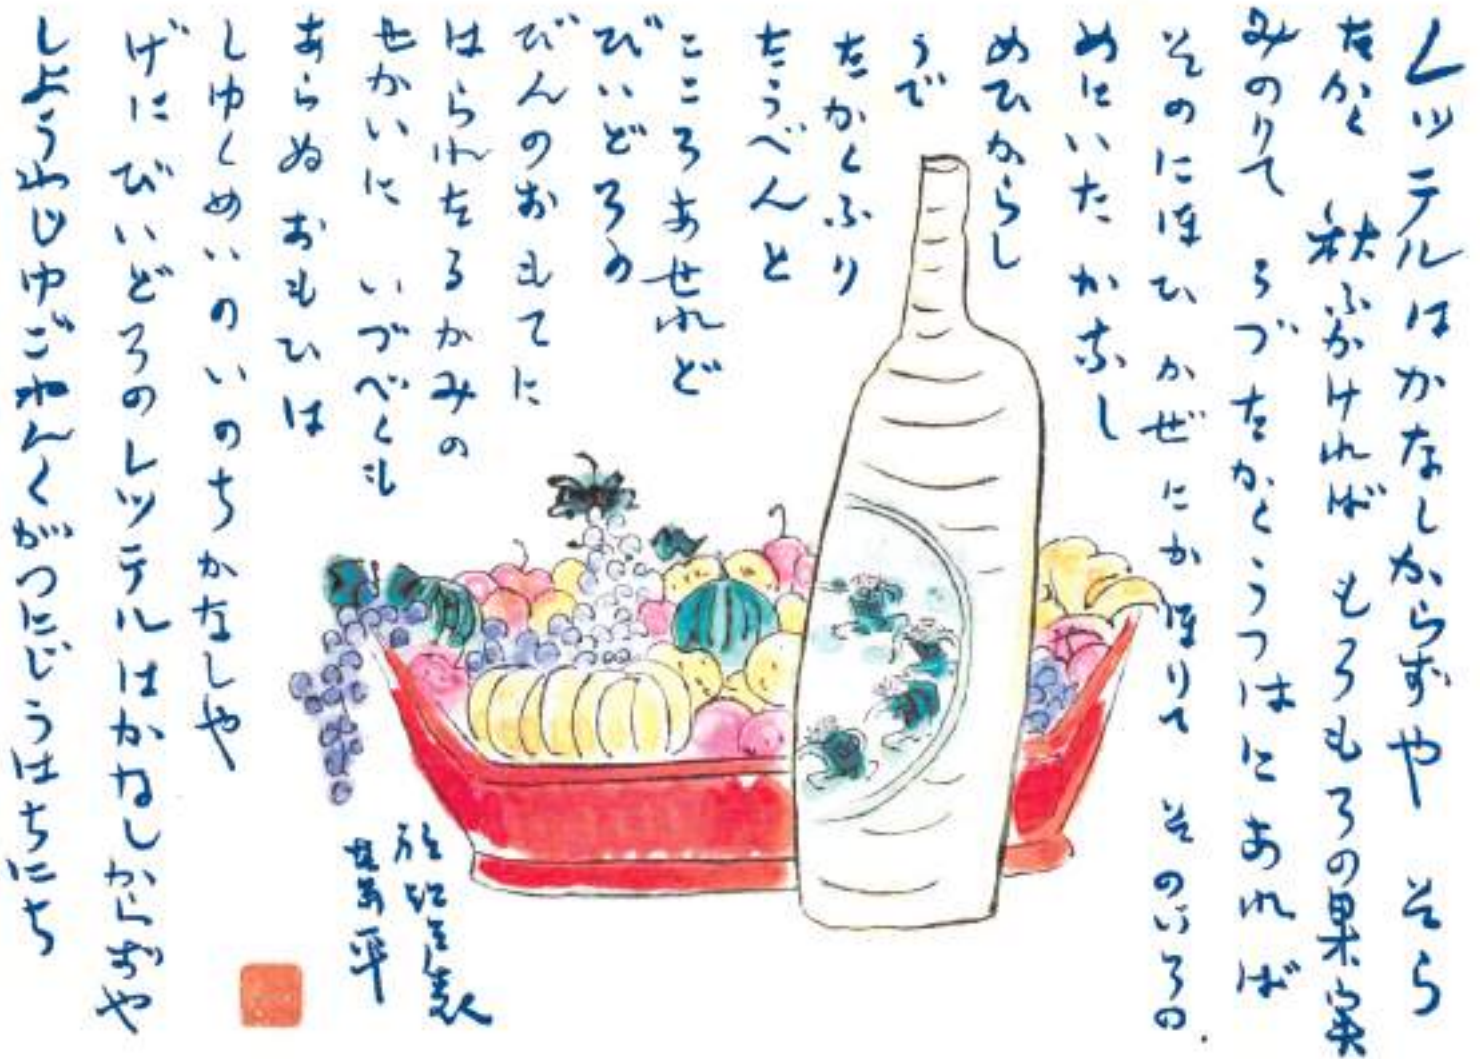 レッテルはかなしからずや そら
たかく 秋ふかければ もろもろの果実
みのりて うづたかくうつはにあれば
そのにほひ かぜにかほりて そのいろの
めにいた かなし
めひからし
うで
たかくふり
たうべんと
こころあせれど
びいどろの
びんのおもてに
はられたるかみの
せかいに いづべくも
あらぬ おもひは
しゆくめいのいのちかなしや
げにびいどろのレッテルはかなしからずや
しようわじゆごねんくがつにじうはちにち